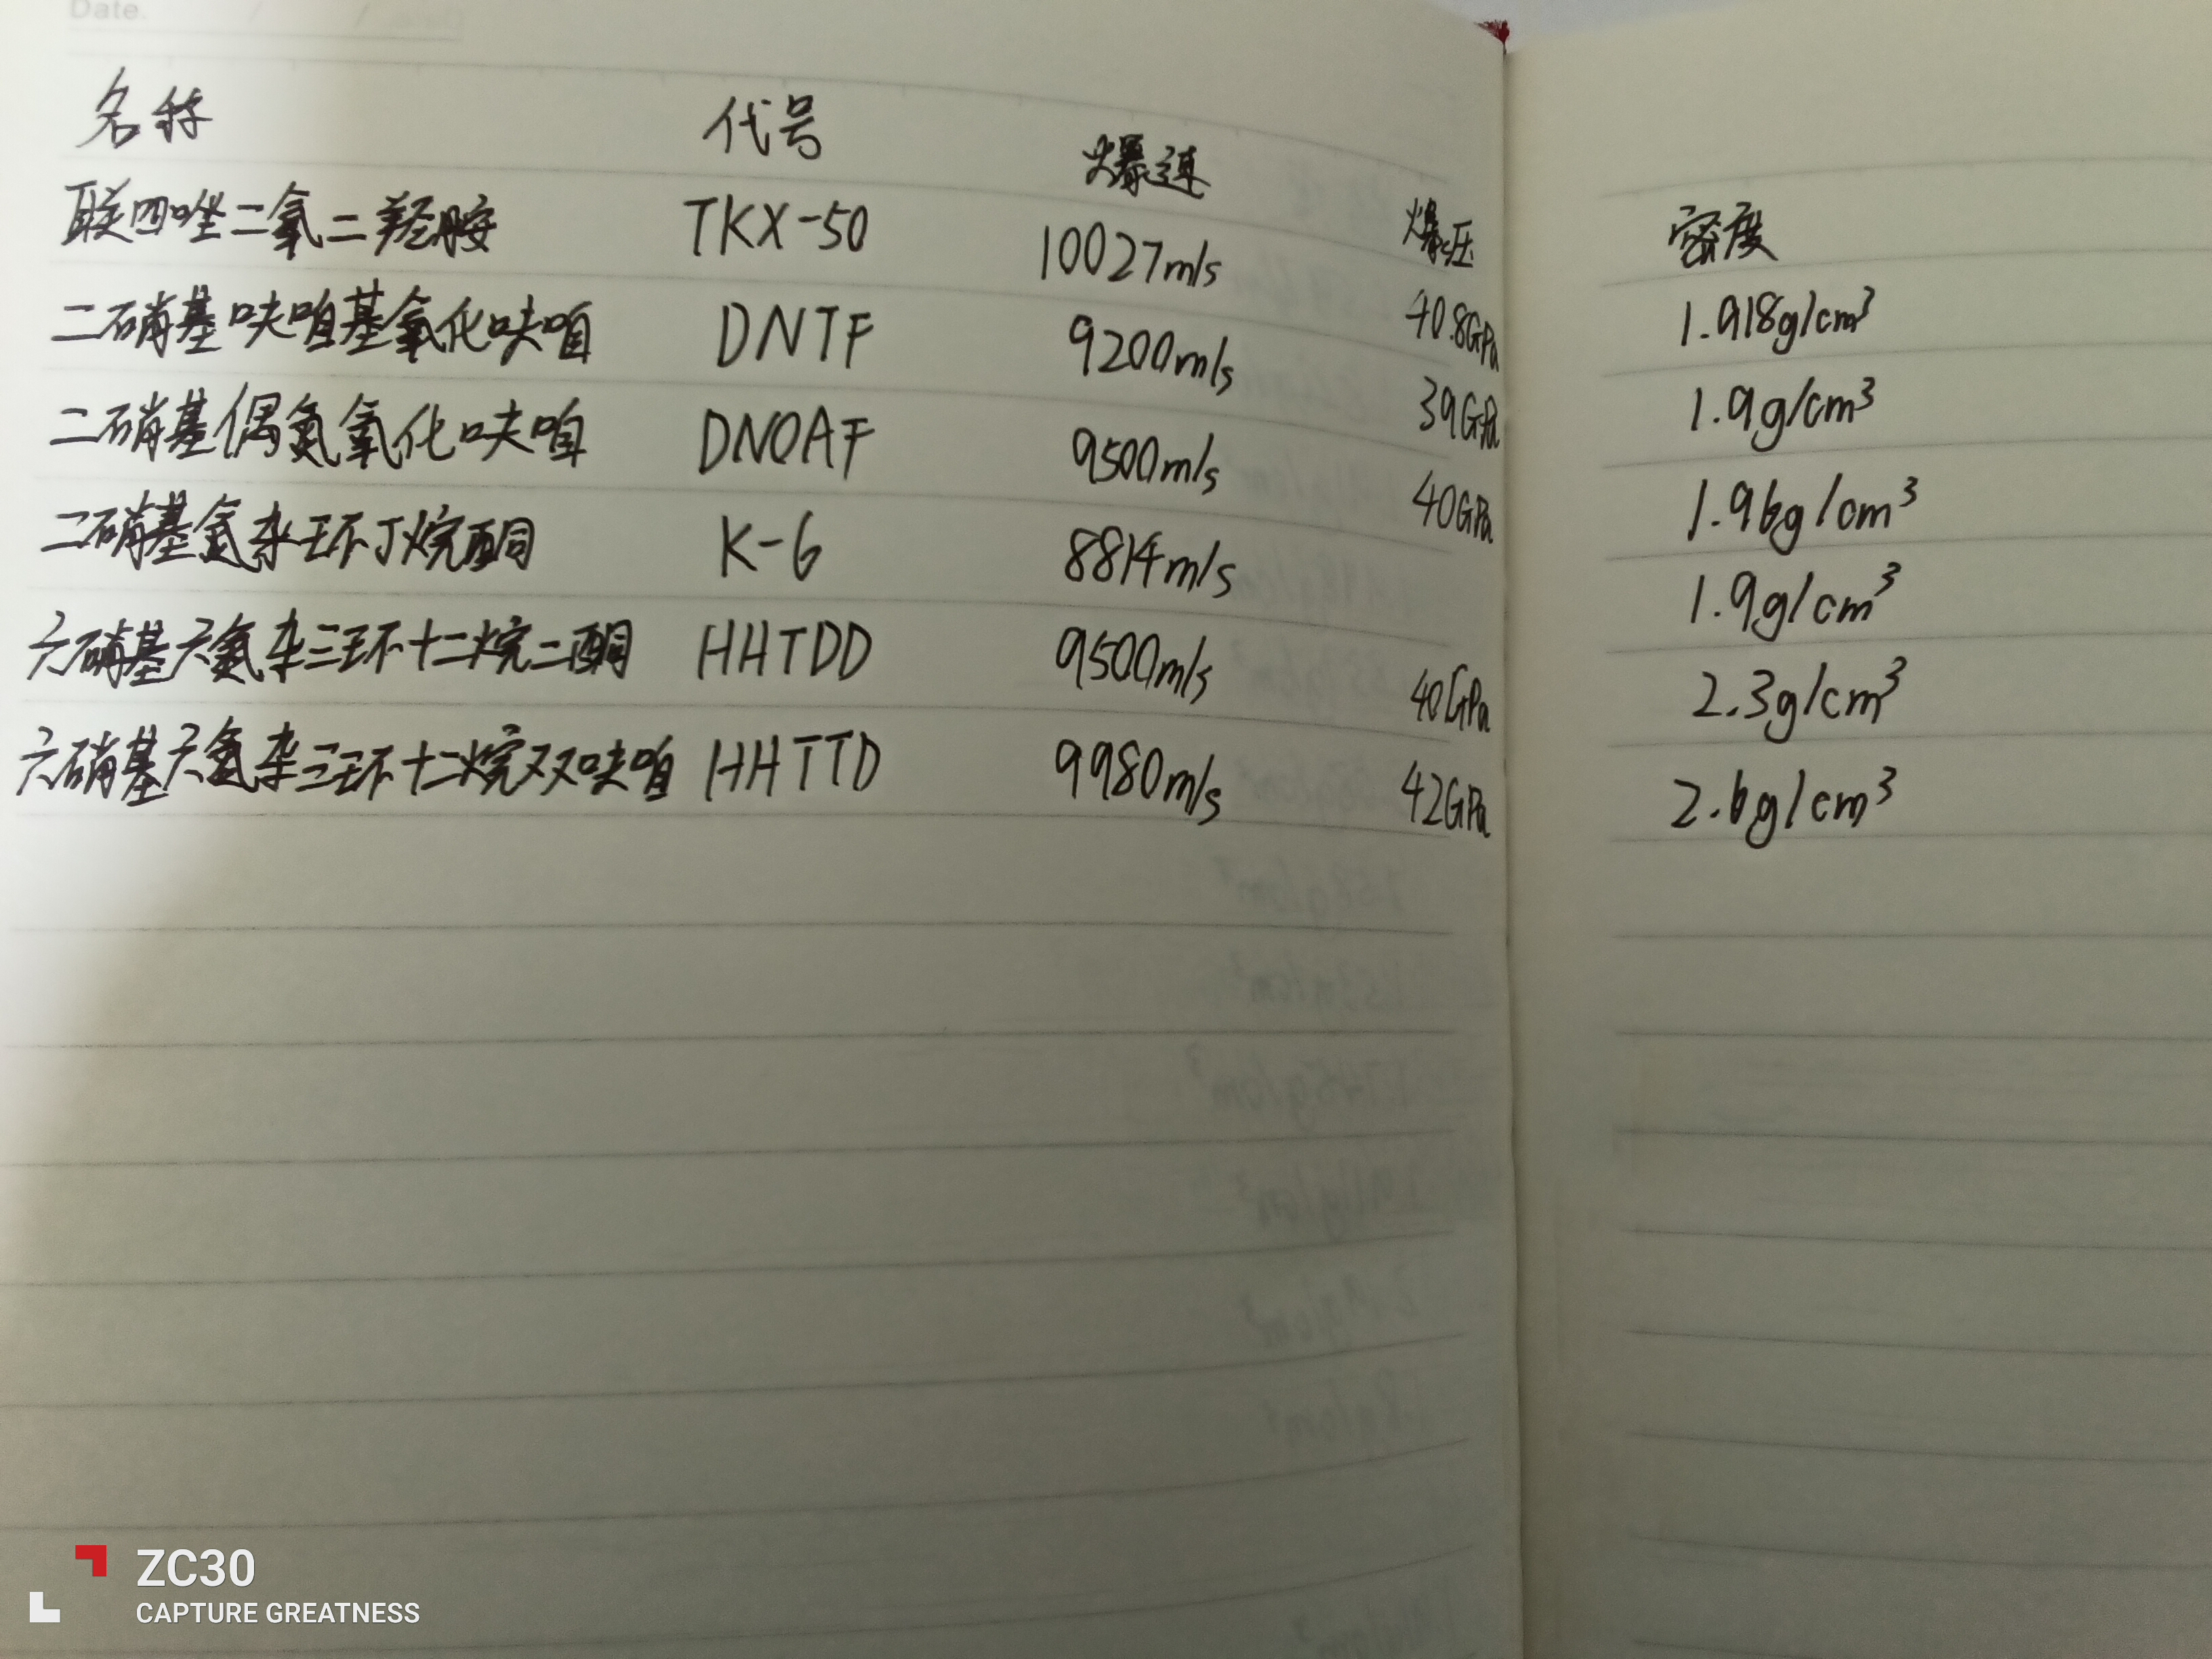 Date.
名称 代号 爆速 爆压 密度
联四唑二氧二羟胺 TKX-50 10027m/s 40.8GPa 1.918g/cm³
二硝基呋咱基氧化呋咱 DNTF 9200m/s 39GPa 1.9g/cm³
二硝基偶氮氧化呋咱 DNOAF 9500m/s 40GPa 1.96g/cm³
二硝基氮杂环丁烷酮 K-6 8814m/s 1.9g/cm³
六硝基六氮杂三环十二烷二酮 HHTDD 9500m/s 40GPa 2.3g/cm³
六硝基六氮杂三环十二烷双呋咱 HHTTD 9980m/s 42GPa 2.6g/cm³
ZC30
CAPTURE GREATNESS